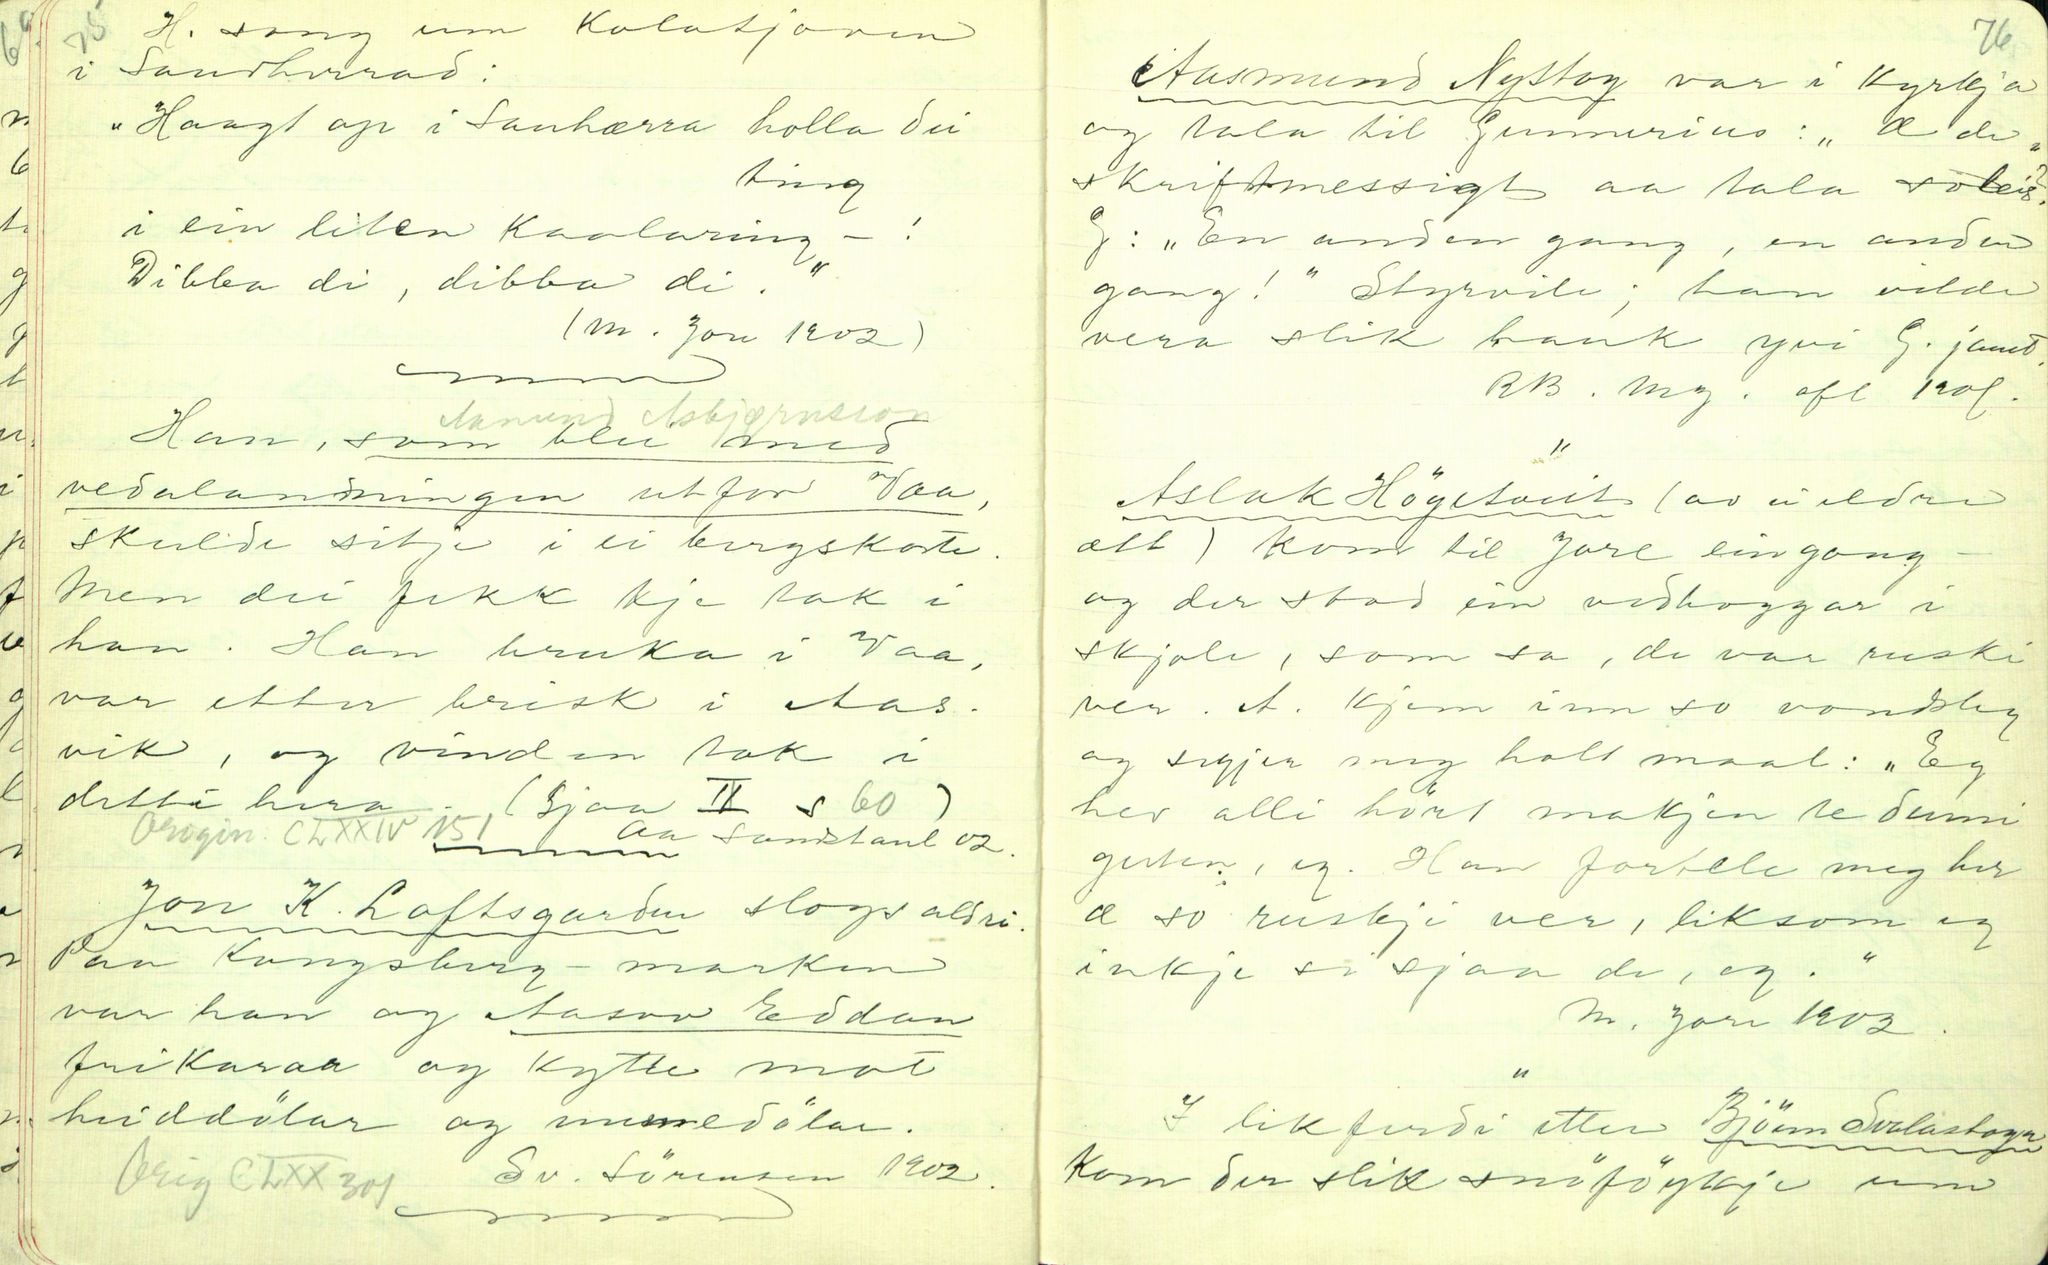 75
H. song um Kolatjoven
i Sandherrad:
"Haagt op i Sanhærra holla dei
ting
i ein liten Kaalaring – !
Dibba di, dibba di."
(M. Jore 1902)
Aanund Asbjørnsson
Han, som blei med
vedalandningen utfor Vaa,
skulde sitje i ei bergskorte.
Men dei fekk kje tak i
han. Han bruka i Vaa,
var etter brisk i Aas-
vik, og vinden tok i
detti hera. (Gjaa II s 60)
Origin. CLXXIV 151 Aa Sandtaul 02.
Jon K. Loftsgarden slogs aldri.
Paa Kongsberg-marken
var han og Aasov Eddan
frikarar og kytte mot
heiddölar og numedölar.
Orig CLXX 301 Sv. Sörensen 1902.
76
Aasmund Nystog var i kyrkja
og tala til Gunnerius: "Æ de
skriftmessigt aa tala soleis?"
G: "En anden gang, en anden
gang!" Styrvile; han vilde
vera slik hauk yvi G. jamt.
RB. My. ofl 190
"
Aslak Högetveit (av ei eldre
ætt) kom til Jore eingong –
og der stod ein vedhoggar i
skjole, som sa, de var ruski
ver. A. kjem inn so vondsleg
og segjer meg halt maal: "Eg
hev alli hört makjen te dummi
guten, eg. Han fortele meg her
æ so ruskji ver, liksom eg
inkje si sjaa de, eg."
M. Jore 1902.
"
I likferdi etter Björn Svalastoga
kom der slik snöföykje um